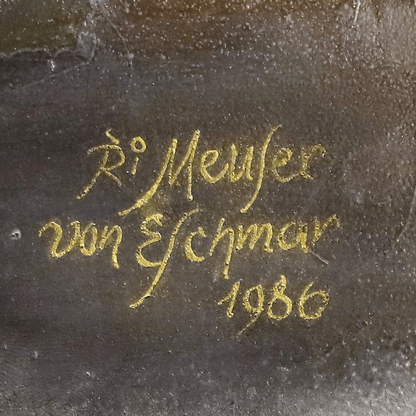 Ri Meuſer
von Eſchmar
1986